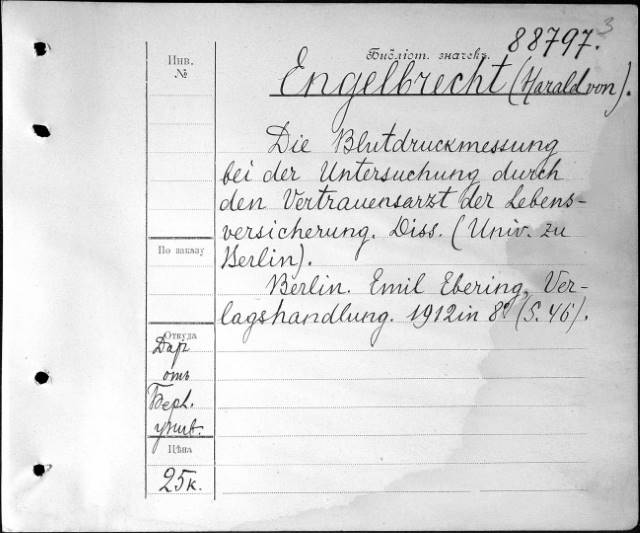 3
Библіот. значекъ 88797.
Инв.
№
Engelbrecht (Harald von).
Die Blutdruckmessung
bei der Untersuchung durch
den Vertrauensarzt der Lebens-
versicherung. Diss. (Univ. zu
Berlin).
Berlin. Emil Ebering, Ver-
lagshandlung. 1912 in 8º (S. 46).
По заказу
Откуда
Дар
отъ
Берл.
унив.
Цѣна
25к.